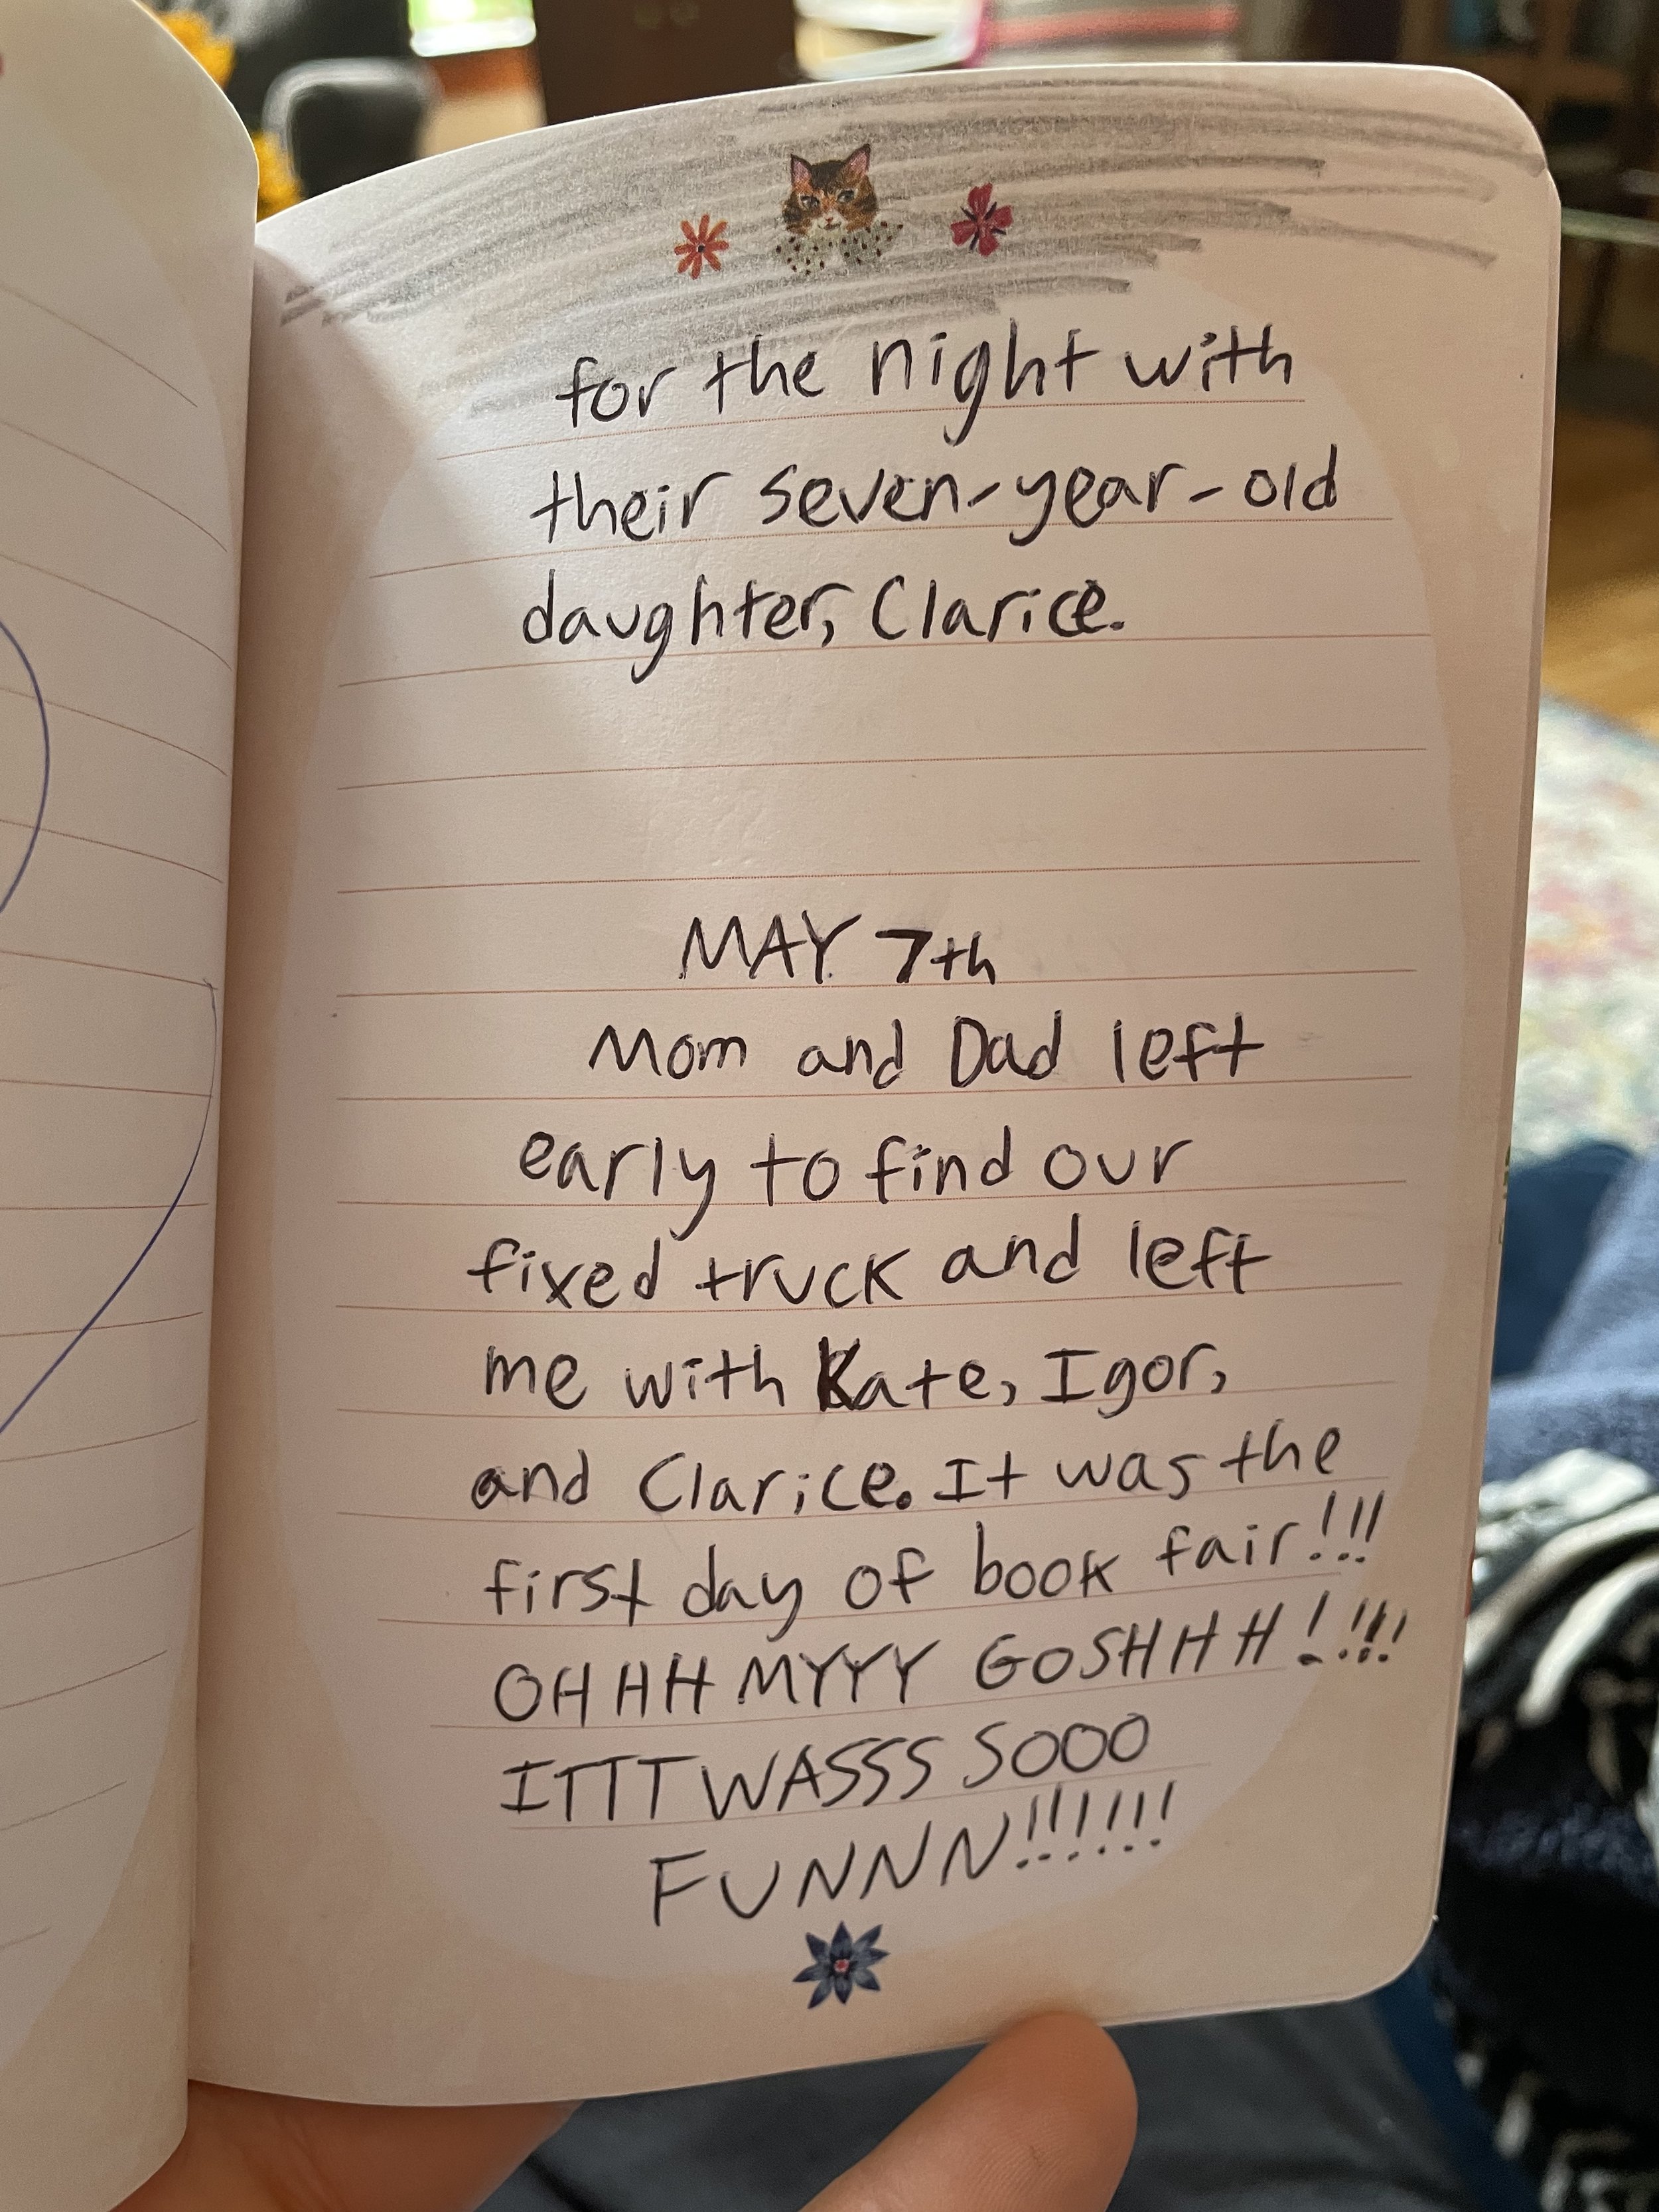 for the night with
their seven-year-old
daughter, Clarice.
MAY 7th
Mom and Dad left
early to find our
fixed truck and left
me with Kate, Igor,
and Clarice. It was the
first day of book fair!!!
OHHH MYYY GOSHHH!!!!
ITTT WASSS SOOO
FUNNN!!!!!!